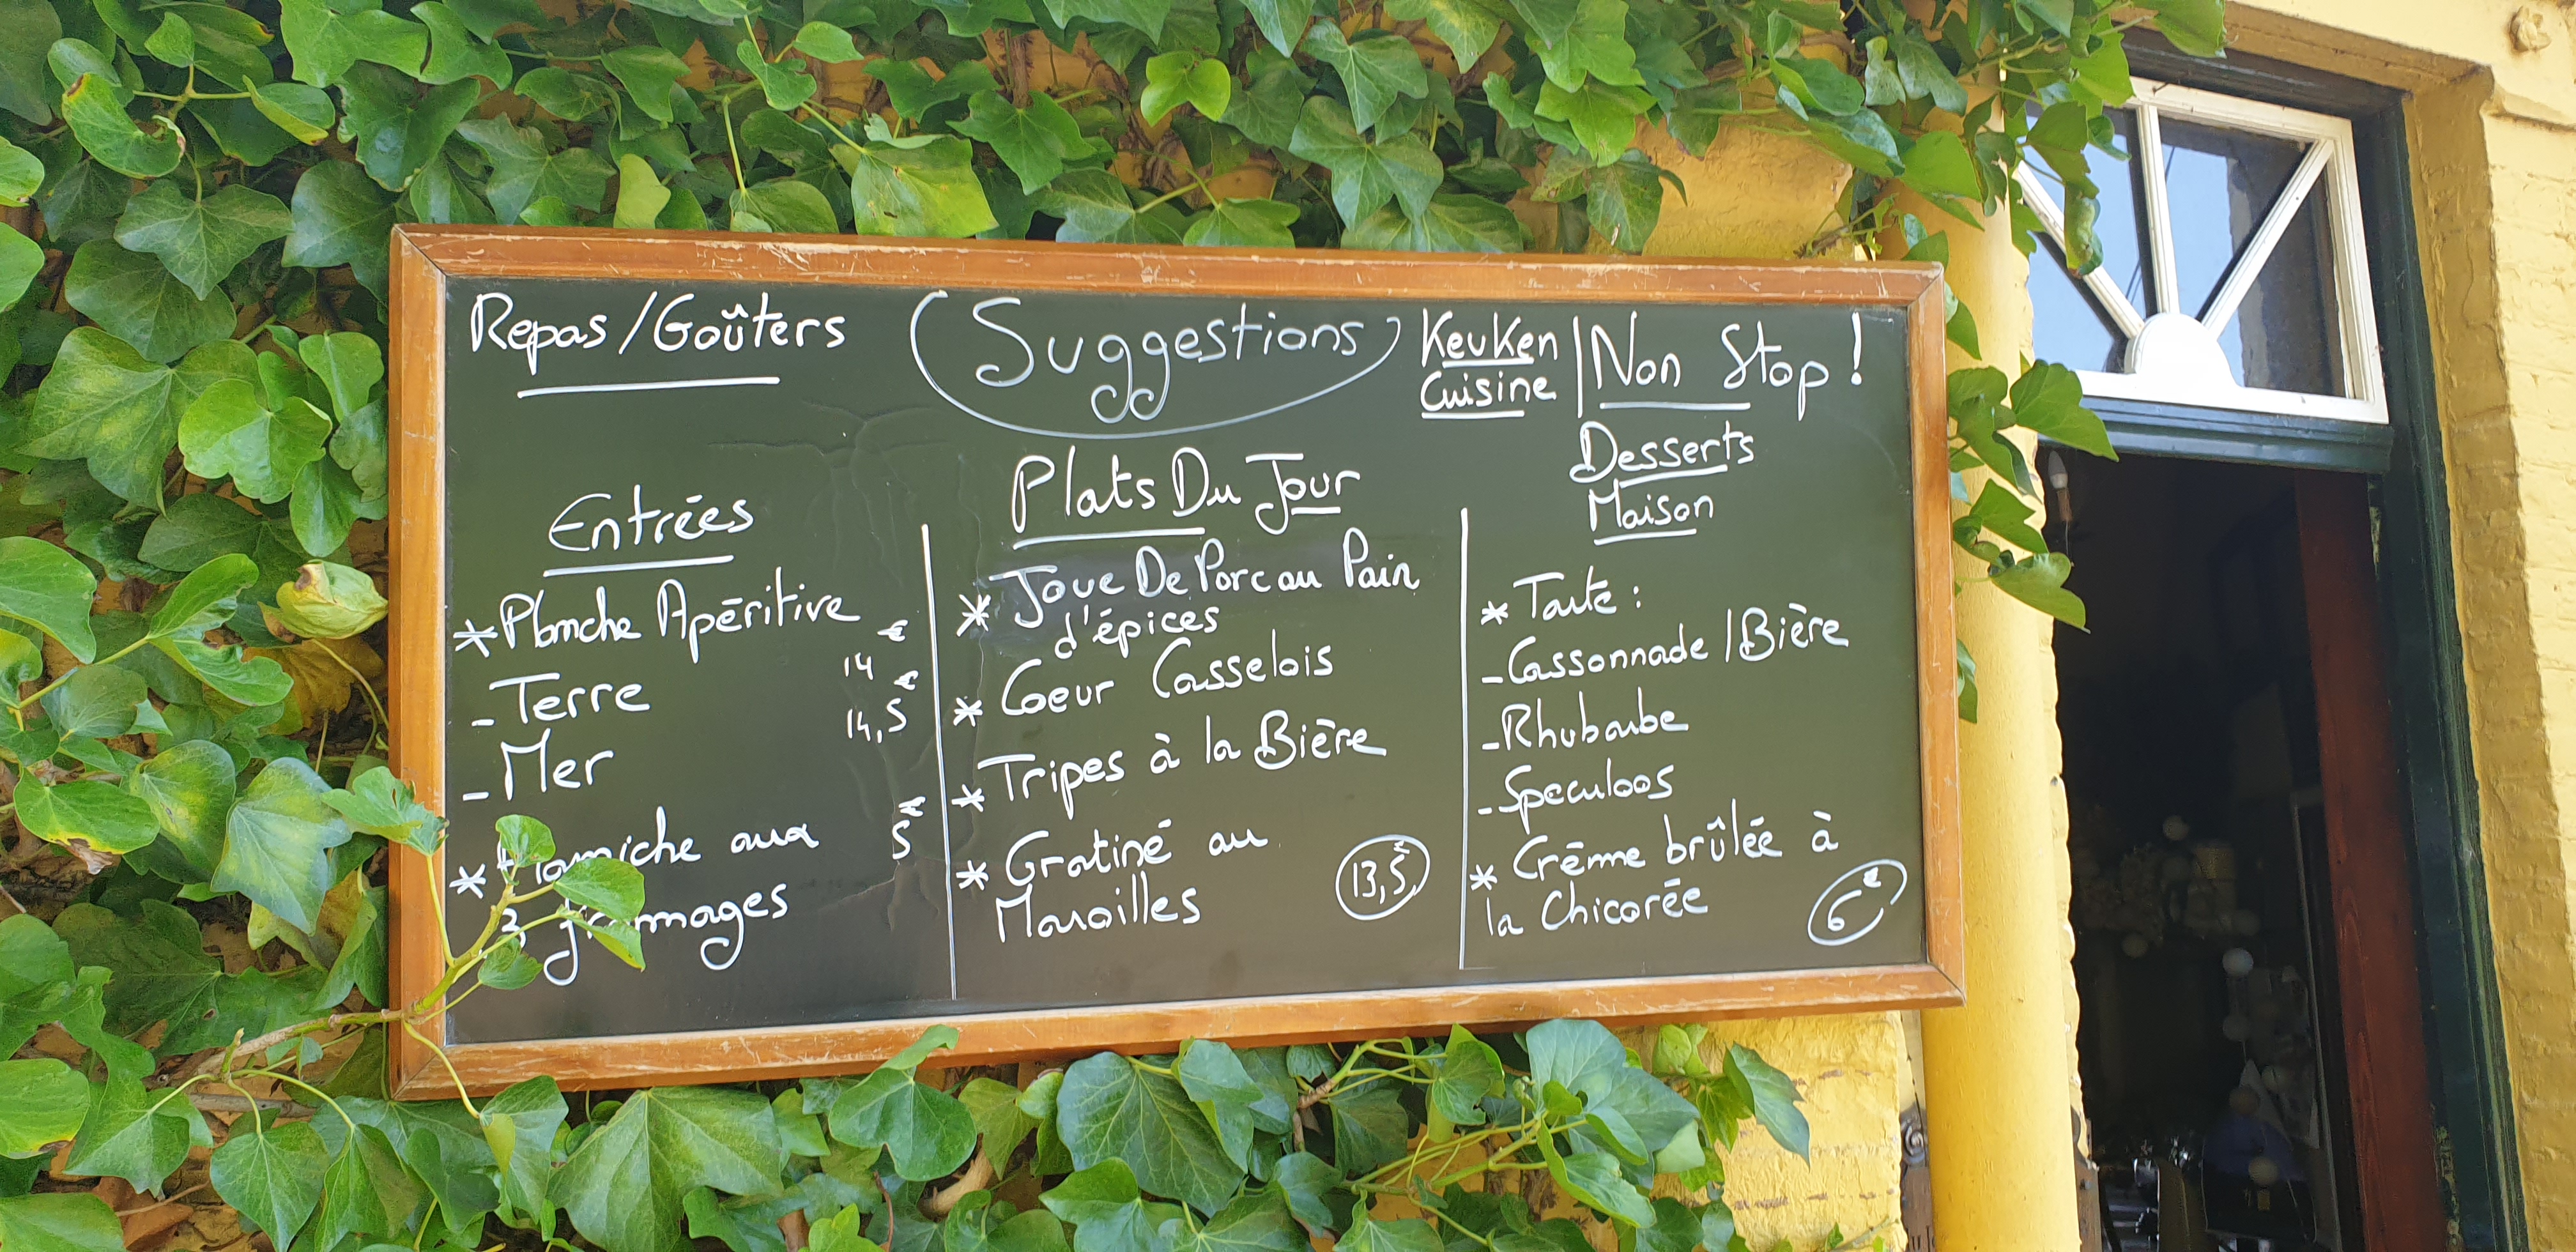 Repas/Goûters
Suggestions
Keuken
Cuisine
Non Stop!
Entrées
* Planche Apéritive
- Terre 14 €
- Mer 14,5 €
* Flamiche aux 5 €
3 fromages
Plats Du Jour
* Joue De Porc au Pain
d'épices
* Coeur Casselois
* Tripes à la Bière
* Gratiné au
Maroilles 13,5 €
Desserts
Maison
* Tarte :
- Cassonnade / Bière
- Rhubarbe
- Speculoos
* Crème brûlée à
la Chicorée 6 €